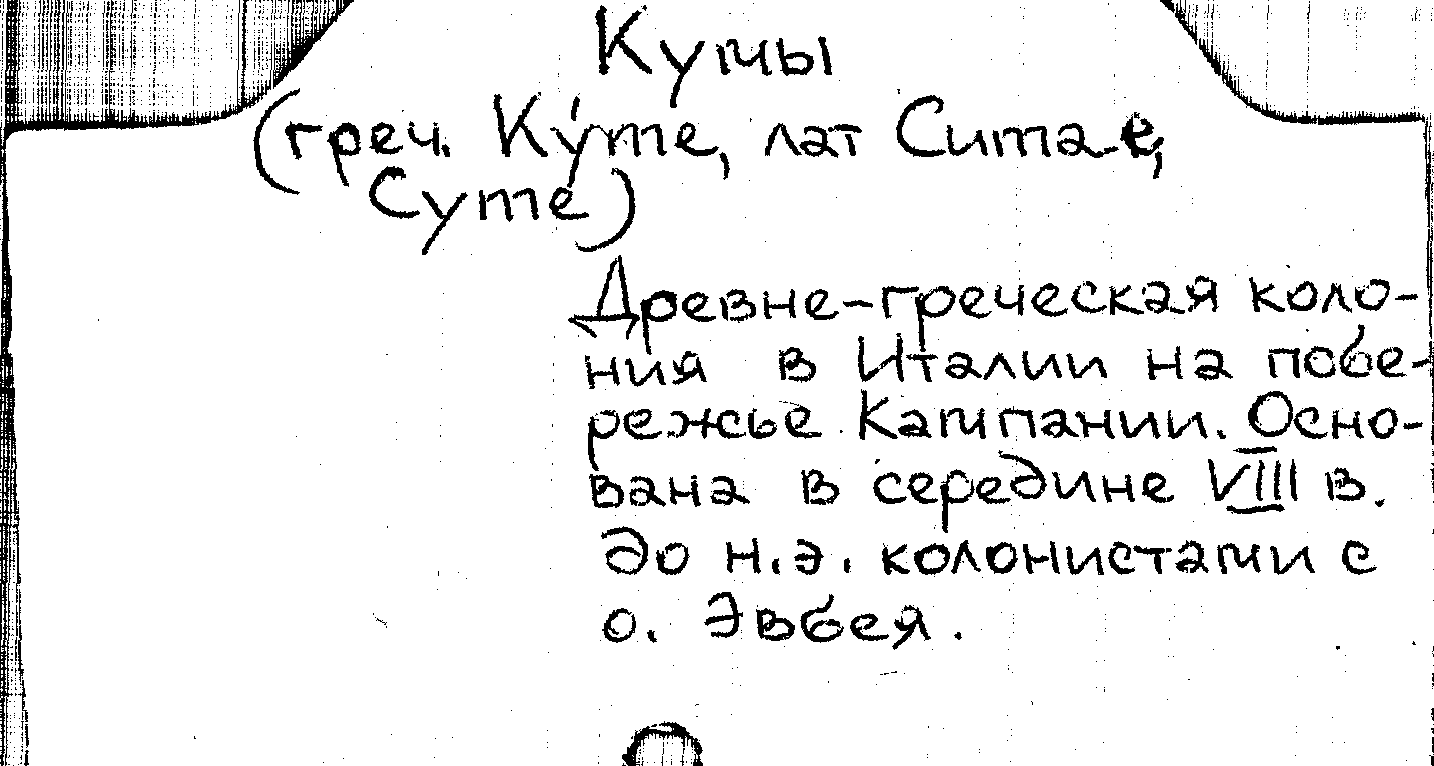 Кумы
(греч. Kýme, лат Cumae,
Cyme)
Древне-греческая коло-
ния в Италии на побе-
режье Кампании. Осно-
вана в середине VIII в.
до н.э. колонистами с
о. Эвбея.